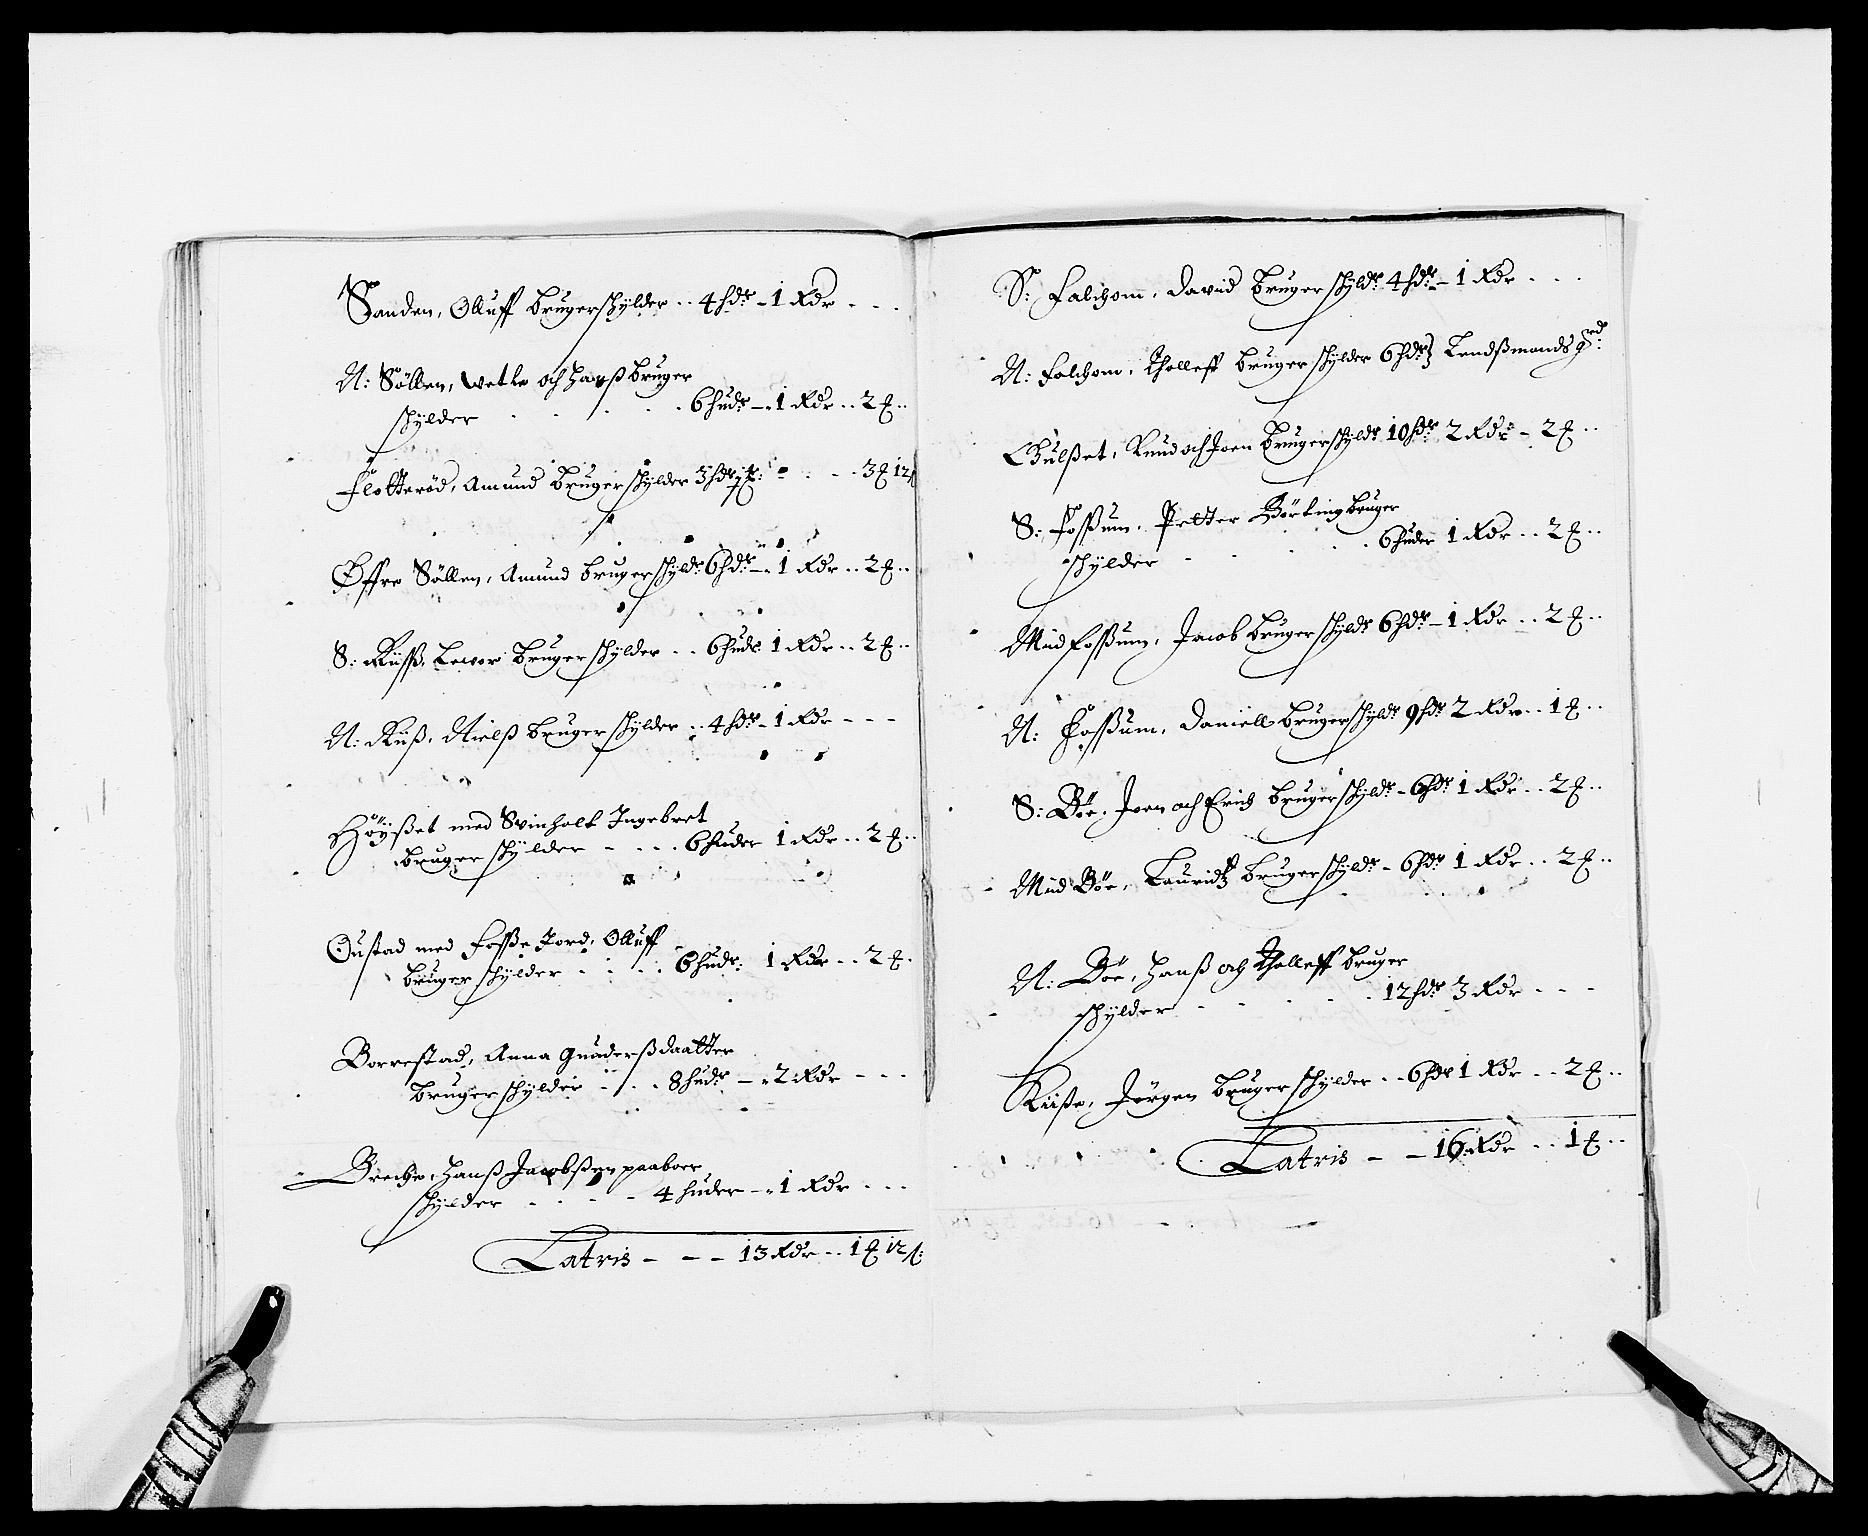 Sanden, Olluff bruger schylder .. 4 hdr – 1 Rdr - - -
N: Söllen, Wetle och Hanß bruger
schylder . . . . . 6 hudr – 1 Rdr .. 2 ℔ ..
Flotterød, Amund bruger schylder 3 hdr - - - 3 ℔ 12 ß
Øffre Söllen, Amund bruger schyldr 6 hdr – 1 Rdr .. 2 ℔ ..
S: Rüß, Lewor bruger schylder .. 6 hudr 1 Rdr .. 2 ℔ ..
N: Rüß, Nielß bruger schylder .. 4 hdr – 1 Rdr - - -
Höÿßet med Svinholt Ingebret
bruger schylder - - - - 6 huder 1 Rdr .. 2 ℔ ..
Oustad med Foße Jord, Olluff
bruger schylder - - - - 6 hudr: 1 Rdr .. 2 ℔ .
Borrestad, Anna Gunderßdaatter
bruger schylder - - - 8 hudr – 2 Rdr - - -
Breche, Hanß Jacobßen paaboer
schylder - - - - 4 huder – 1 Rdr - - -
Latris - - - 13 Rdr .. 1 ℔ 12 ß:
S: Falchom, David bruger schyldr 4 hdr – 1 Rdr - - -
N: Falchom, Tholleff bruger schylder 6 hdr Lendßmands grd:
Gulßet, Knud och Joen bruger schyldr 10 hdr 2 Rdr – 2 ℔ ..
S: Foßum, Petter Börting bruger
schylder - - - - - 6 huder 1 Rdr .. 2 ℔ ..
Mid Foßum, Jacob bruger schyldr 6 hdr – 1 Rdr .. 2 ℔ ..
N: Foßum, Daniell bruger schyldr 9 hdr 2 Rdr .. 1 ℔ ..
S: Böe, Joen och Erich bruger schyldr – 6 hdr 1 Rdr .. 2 ℔ ..
Mid Böe, Lauridtz bruger schyldr – 6 hdr 1 Rdr .. 2 ℔ ..
N: Böe, Hanß och Tholleff bruger
schylder - - - - - 12 hdr 3 Rdr - - -
Kiiße, Jörgen bruger schylder .. 6 hdr 1 Rdr .. 2 ℔ ..
Latris - - 16 Rdr .. 1 ℔ ..